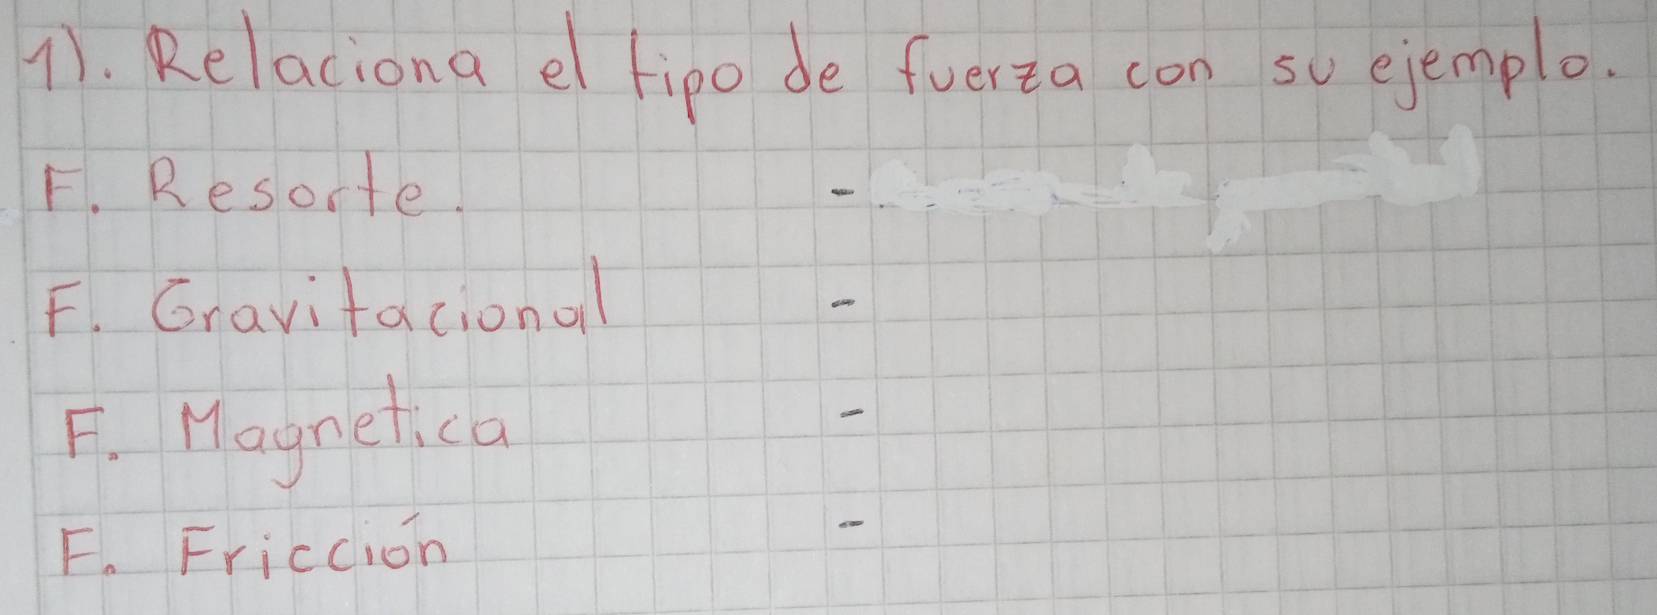 1). Relaciona el tipo de fuerza con su ejemplo.
F. Resorte. -
F. Gravitacional -
F. Magnetica -
F. Fricción -